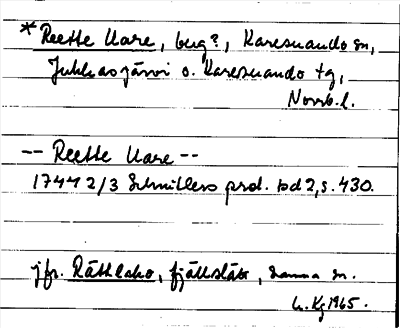 *Reette Uare, bug?, Karesuando sn,
Jukkasjärvi o. Karesuando tg,
Norrb. l.
-- Reette Uare --
1744 2/3 Schnitlers prot. bd 2, s. 430.
jfr. Rättsako, fjällslätt, samma sn.
1965.